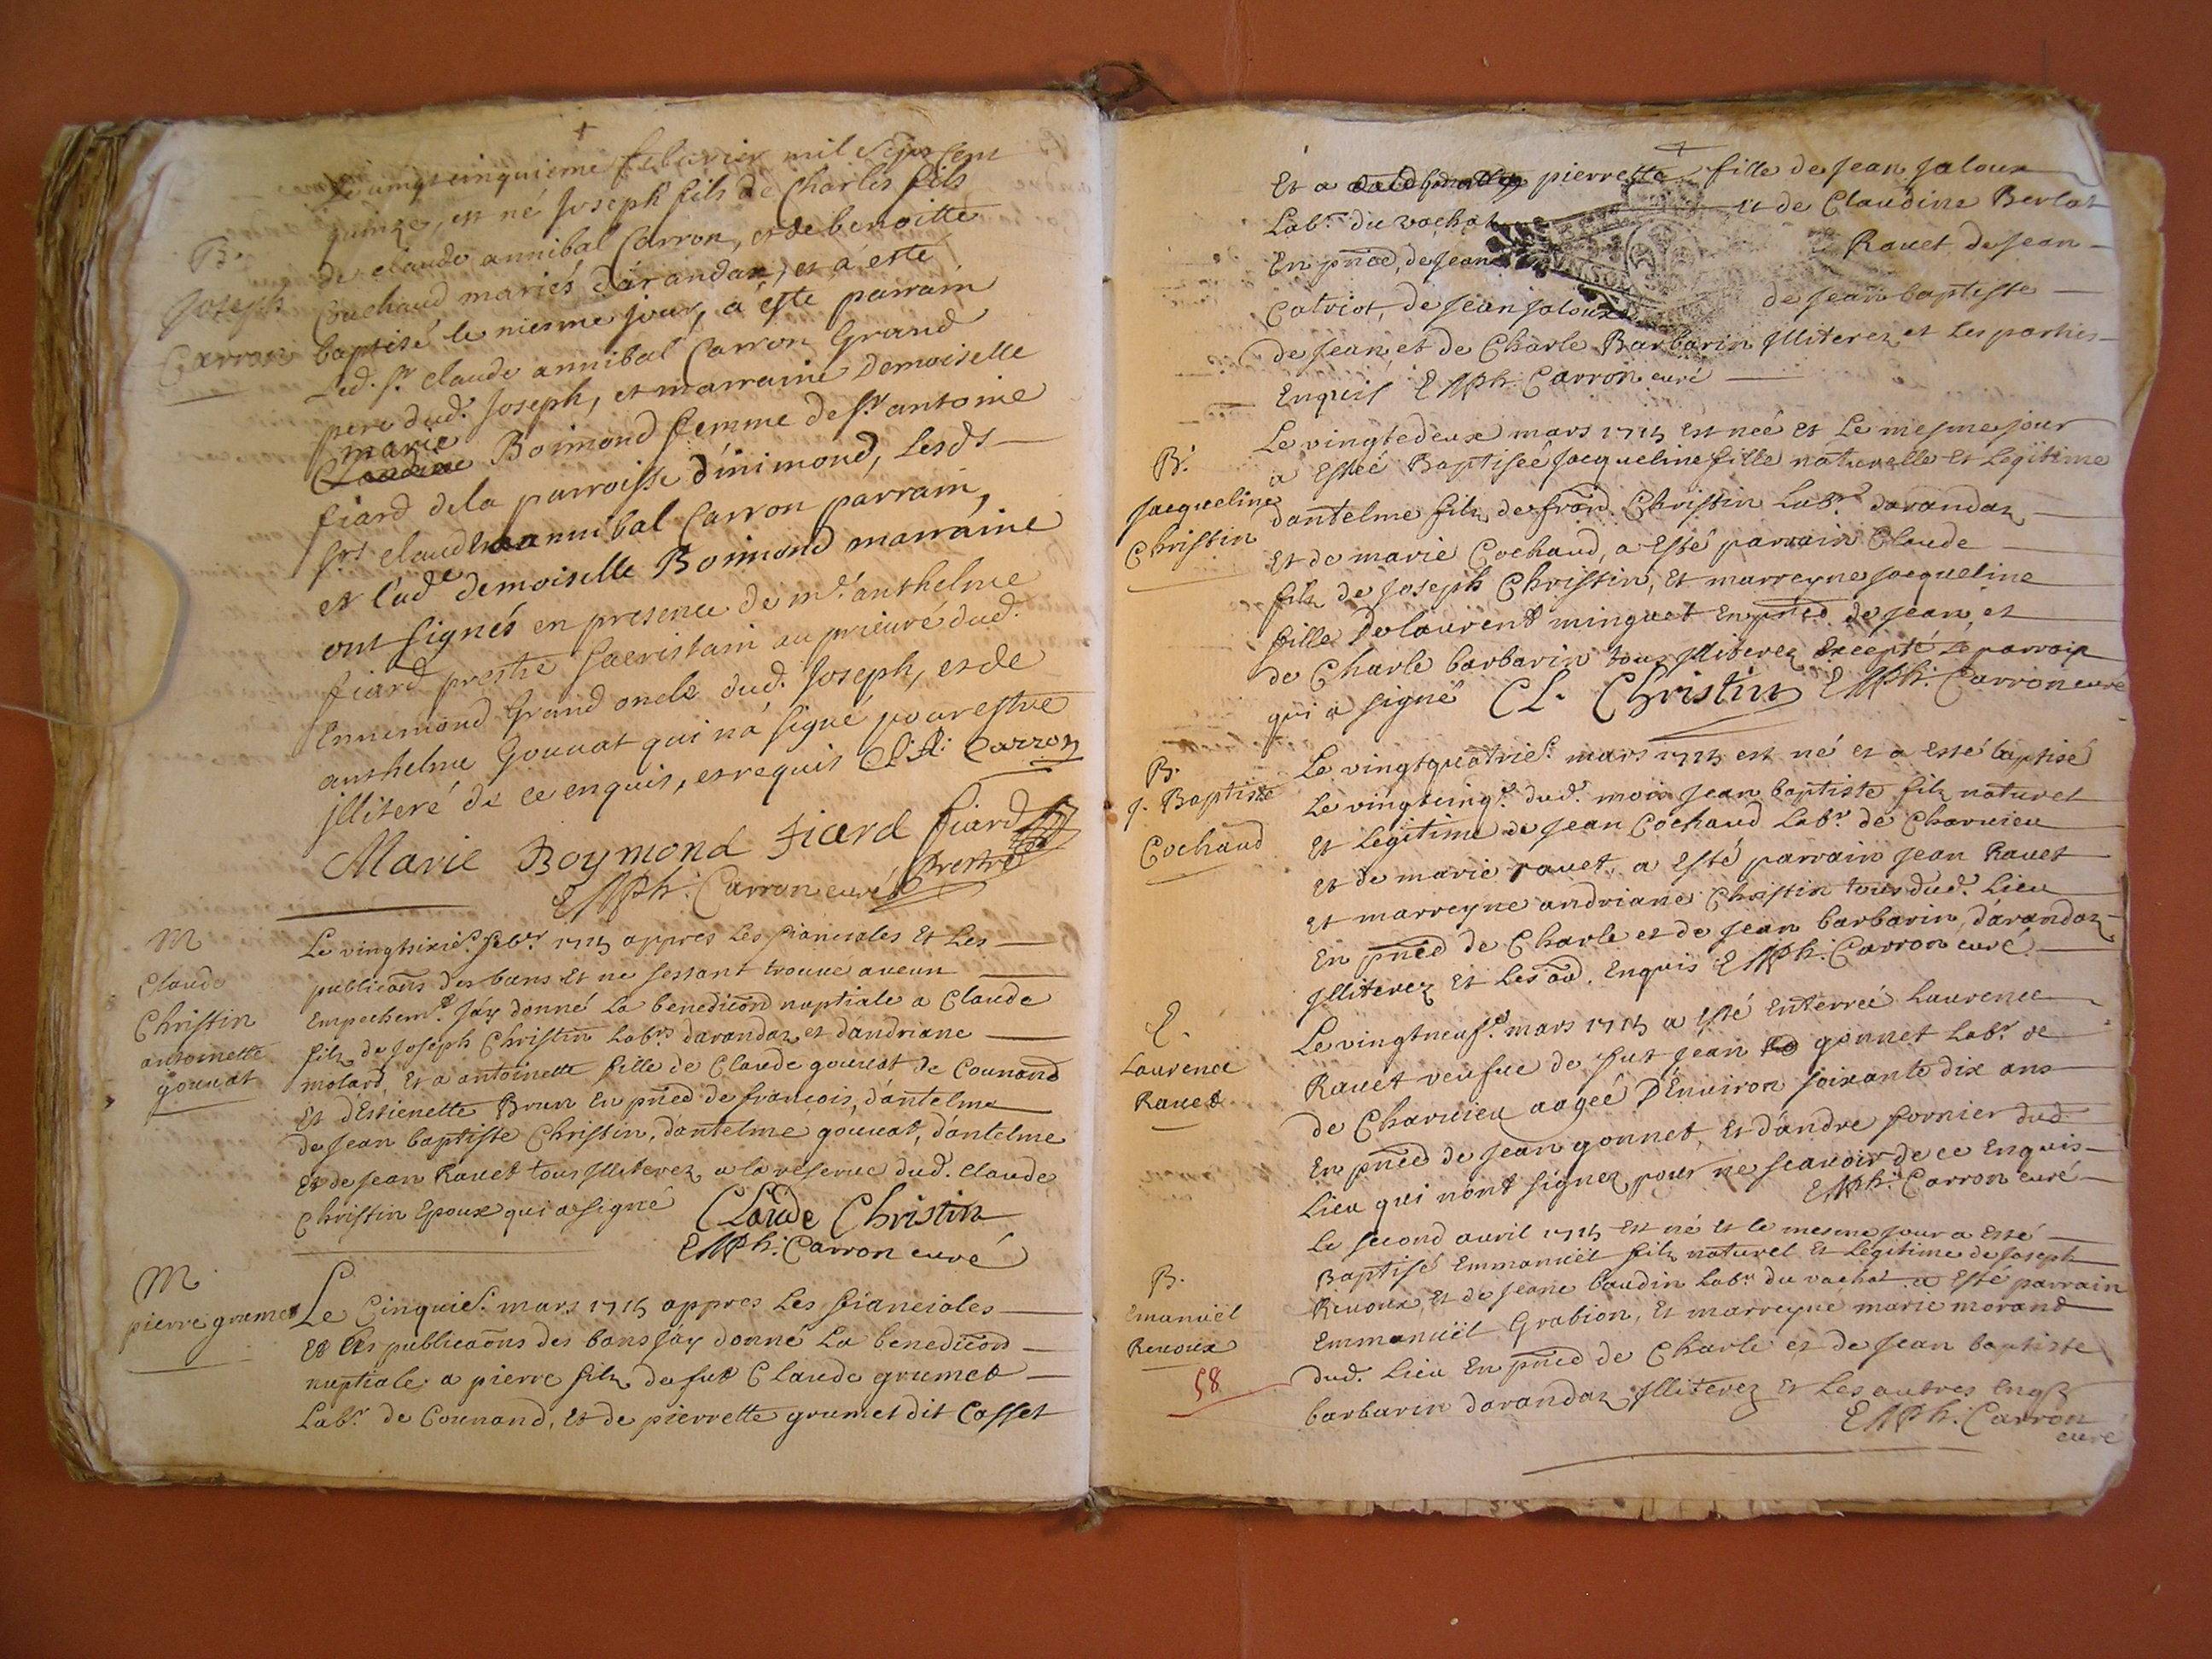 Le vingt cinquieme feburier mil sept cent
quinze, est né Joseph fils de Charles fils
de claude annibal Carron, et de benoitte
Cuchaud mariés d'arandaz, et a esté
baptisé le mesme jour, a este parrain
Led. Sr claude annibal Carron Grand
pere dud. Joseph, et marraine Demoiselle
marie
Claudine Boimond femme de Sr antoine
fiard de la parroisse d'inimond, Lesds
Srs claude annibal Carron parrain,
et lade demoiselle Boimond marraine
ont signés en presence de mr. anthelme
fiard prestre Sacristain au prieuré dud.
Ennemond Grand oncle dud. Joseph, et de
anthelme Gouuat qui n'a signé pour estre
jlliteré de ce enquis, et requis C. A. Carron
Marie Boymond fiard fiard
Prestre
Carron curé
B.
Joseph
Carron
Le vingtsixie. febvr 1715 appres Les fiancialles Et Les
publicaons des bans Et ne sestant trouué aucun
Empechemt. jáy donné La benedicon nuptiale a Claude
filz de Joseph Christin Labr. darandaz et dandriane
molard, Et a antoinette fille de Claude gouuat de Counand
Et d'Estienette Brun En pnce de francois, dántelme
de Jean baptiste Christin, dántelme gouuat, dántelme
Et de Jean Rauet tous Jlliterez a la reserue dud. Claude
Christin Epoux qui a signé Claude Christin
Carron curé
M
Claude
Christin
antoinette
gouuat
Le Cinquie. mars 1715 appres Les fianciales
Et Les publicaons des bans jáy donné La benedicon
nuptiale a pierre filz de fut Claude grumet
Labr de Counand, Et de pierrette grumet dit Casset
M
pierre grumet
Et a pierrette fille de Jean Jaloux
Labr. du vachat et de Claudine Berlat
En pnce, de Jean Rauet de Jean
Catriot, de Jean Jaloux de Jean baptiste
de Jean, et de Charle Barbarin Jlliterez et Les parties
Enquis Carron curé
Le vingtedeux mars 1715 est née et Le mesme jour
a Estée Baptisée Jacqueline fille naturelle Et Legitime
dantelme filz de frand. Christin Labr. darandaz
Et de marie Cochaud, a Esté parrain Claude
filz de Joseph Christin, Et marreyne Jacqueline
fille de laurent minguet En pnce de Jean, et
de Charle barbarin tous Jlliterez Excepté Le parrain
qui a signé Cl. Christin Carron curé
B.
Jacqueline
Christin
Le vingtquatrie. mars 1715 est né et a Esté baptisé
Le vingtcinqe. dud. mois Jean baptiste filz naturel
Et Legitime de Jean Cochaud Labr. de Charuieu
Et de marie rauet, a Esté parrain Jean Rauet
Et marreyne andriane Christin tous dud. Lieu
En pnce de Charle et de Jean barbarin, dárandaz
Jlliterez Et Les aud. Enquis Carron curé
B.
j. Baptiste
Cochaud
Le vingtneufe. mars 1715 a Esté Enterrée Laurence
Rauet veufue de fut Jean gonnet Labr de
de Charuieu aagée D'Enuiron soixante dix ans
En pnce de Jean gonnet, Et dándre fornier dud
Lieu qui nont signez pour ne scauoir de ce Enquis
Carron curé
E.
Laurence
Rauet
Le second auril 1715 Est né Et le mesme jour a Esté
Baptisé Emmanuël filz naturel Et Legitime de Joseph
Reuoux, Et de Jeane baudin Labr. du vachat a Esté parrain
Emmanuël Grabion, Et marreyne marie morand
dud. Lieu En pnce de Charle et de Jean baptiste
barbarin darandaz Jlliterez Et Les autres Enqs
Carron
curé
B.
Emanuël
Reuoux
58